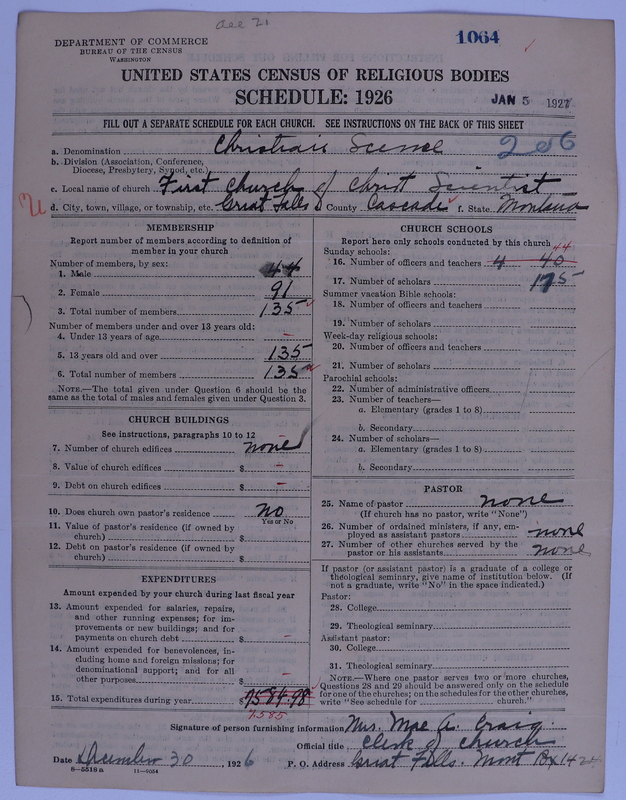 ace 21
1064
DEPARTMENT OF COMMERCE
BUREAU OF THE CENSUS
WASHINGTON
UNITED STATES CENSUS OF RELIGIOUS BODIES
SCHEDULE: 1926
JAN 5 1927
FILL OUT A SEPARATE SCHEDULE FOR EACH CHURCH. SEE INSTRUCTIONS ON THE BACK OF THIS SHEET
a. Denomination Christian Science 206
b. Division (Association, Conference,
Diocese, Presbytery, Synod, etc.)
c. Local name of church First Church of Christ Scientist
d. City, town, village, or township, etc. Great Falls County Cascade f. State Montana
MEMBERSHIP
Report number of members according to definition of
member in your church
Number of members, by sex:
1. Male 44
2. Female 91
3. Total number of members 135
Number of members under and over 13 years old:
4. Under 13 years of age -
5. 13 years old and over 135
6. Total number of members 135
NOTE.—The total given under Question 6 should be the
same as the total of males and females given under Question 3.
CHURCH BUILDINGS
See instructions, paragraphs 10 to 12
7. Number of church edifices none
8. Value of church edifices $ -
9. Debt on church edifices $ -
10. Does church own pastor's residence no
Yes or No
11. Value of pastor's residence (if owned by
church) $
12. Debt on pastor's residence (if owned by
church) $
EXPENDITURES
Amount expended by your church during last fiscal year
13. Amount expended for salaries, repairs,
and other running expenses; for im-
provements or new buildings; and for
payments on church debt $ -
14. Amount expended for benevolences, in-
cluding home and foreign missions; for
denominational support; and for all
other purposes $ -
15. Total expenditures during year $ 7584.98
7585
CHURCH SCHOOLS
Report here only schools conducted by this church
Sunday schools: 44
16. Number of officers and teachers 4 40
17. Number of scholars 175
Summer vacation Bible schools:
18. Number of officers and teachers
19. Number of scholars
Week-day religious schools:
20. Number of officers and teachers
21. Number of scholars
Parochial schools:
22. Number of administrative officers
23. Number of teachers—
a. Elementary (grades 1 to 8)
b. Secondary
24. Number of scholars—
a. Elementary (grades 1 to 8)
b. Secondary
PASTOR
25. Name of pastor none
(If church has no pastor, write "None")
26. Number of ordained ministers, if any, em-
ployed as assistant pastors none
27. Number of other churches served by the
pastor or his assistants none
If pastor (or assistant pastor) is a graduate of a college or
theological seminary, give name of institution below. (If
not a graduate, write "No" in the space indicated.)
Pastor:
28. College
29. Theological seminary
Assistant pastor:
30. College
31. Theological seminary
NOTE.—Where one pastor serves two or more churches,
Questions 28 and 29 should be answered only on the schedule
for one of the churches; on the schedules for the other churches,
write "See schedule for church."
Signature of person furnishing information Mrs. Mae A. Craig
Official title Clerk of Church
Date December 30, 1926 P. O. Address Great Falls. Mont Bx 142
8—5518a 11—9034